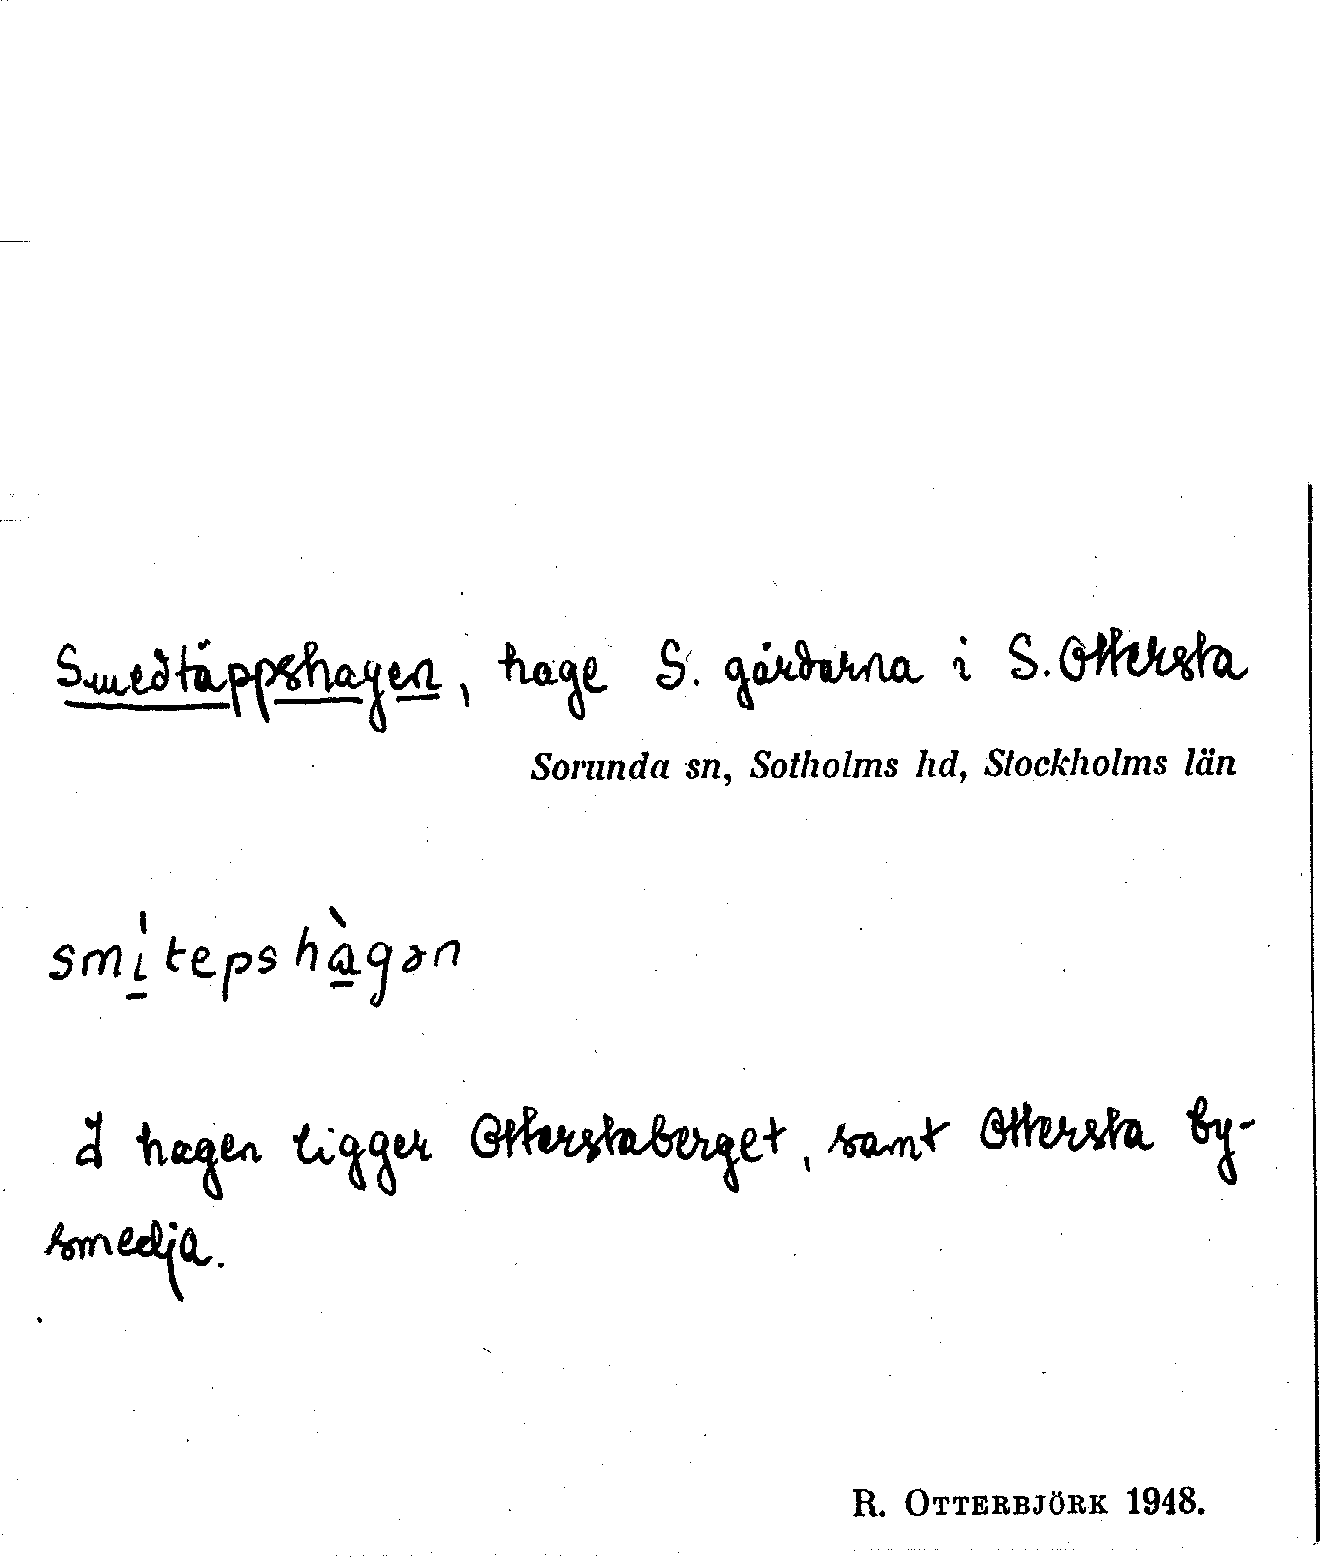 Smedtäppshagen, hage S. gårdarna i S. Ottersta
Sorunda sn, Sotholms hd, Stockholms län
smí̱tepshà̱gən
I hagen ligger Otterstaberget, samt Ottersta by-
smedja.
R. OTTERBJÖRK 1948.